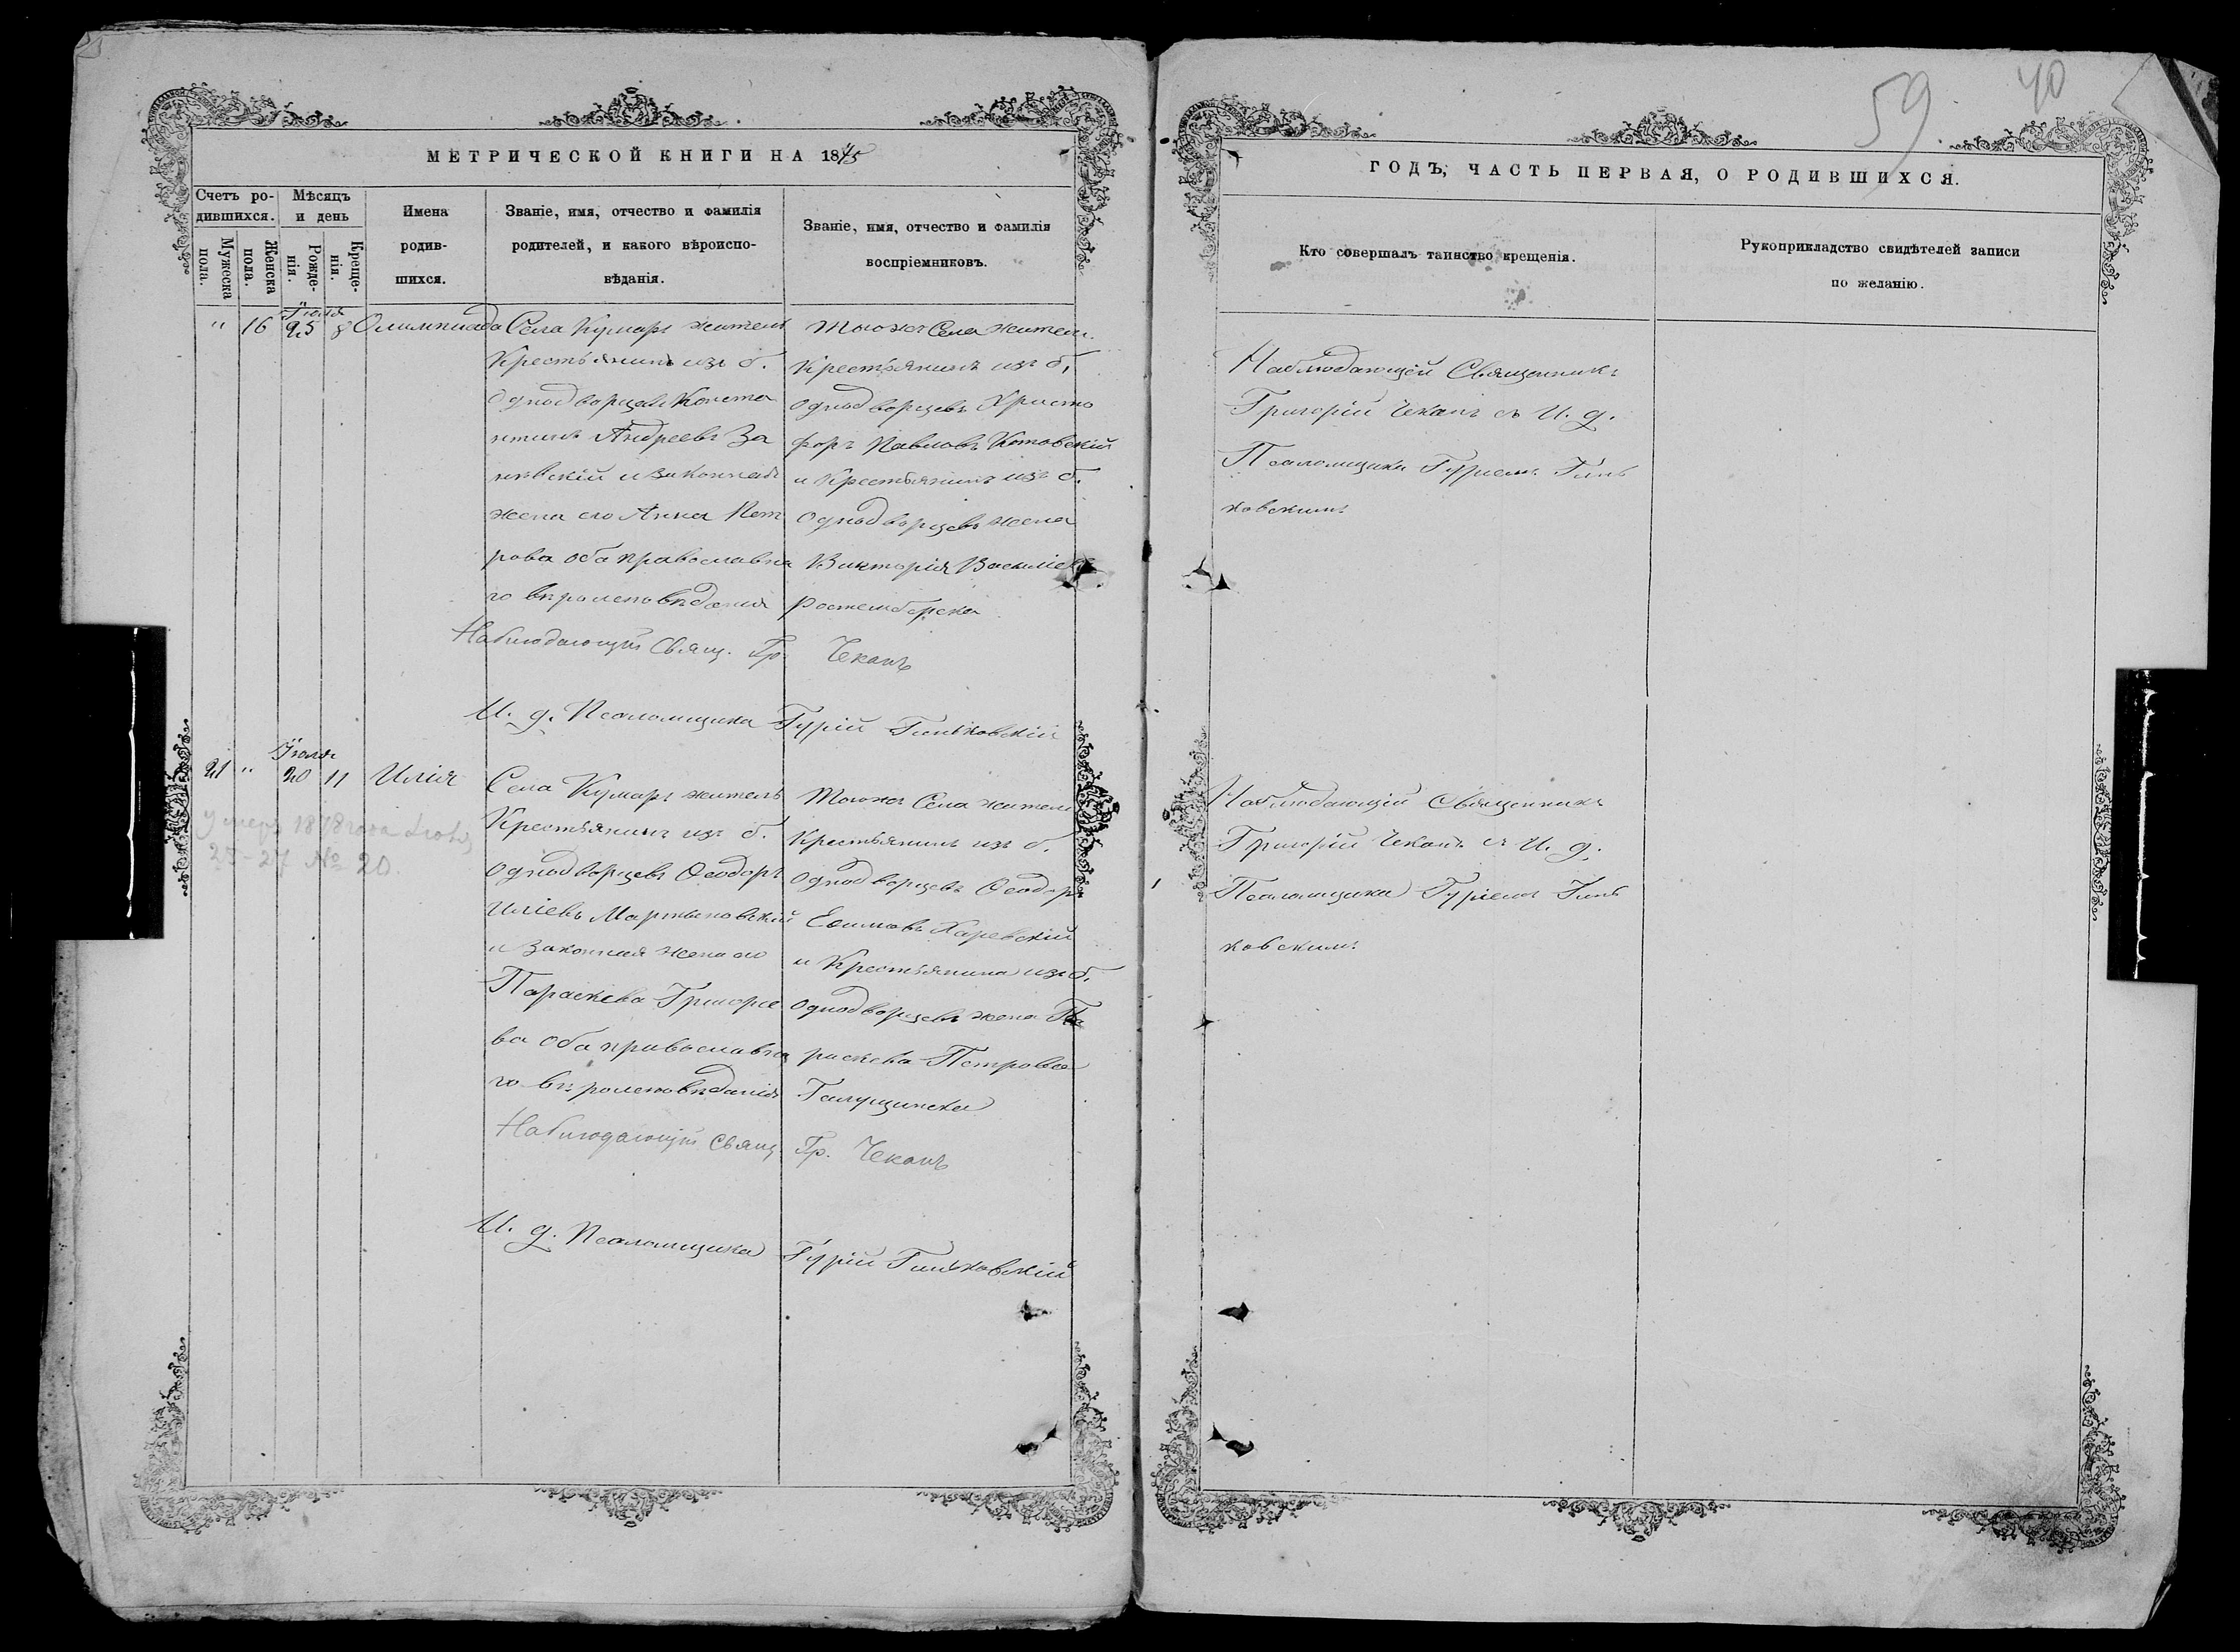 МЕТРИЧЕСКОЙ КНИГИ НА 1875
Счетъ ро-
дившихся.
Мужеска
пола.
Женска
пола.
Мѣсяцъ
и день
Рожде-
нія.
Креще-
нія.
Имена
родив-
шихся.
Званіе, имя, отчество и фамилія
родителей, и какого вѣроиспо-
вѣданія.
Званіе, имя, отчество и фамилія
воспріемниковъ.
" 16 25 8 Олимпиада
Села Кумаръ житель
Крестьянинъ изъ б.
Однодворцевъ Конста
нтинъ Андреевъ За
невскій и законная
жена его Анна Пет
рова оба православна
го вѣроисповѣданія
Тогоже Села жители
Крестьянинъ изъ б.
Однодворцевъ Христо
форъ Павловъ Котовскій
и Крестьянинъ изъ б.
Однодворцевъ жена
Викторія Василіева
Наблюдающій Свящ. Гр. Чеканъ
И. д. Псаломщика Гурій Гиньковскій
Іюля
21 " 20 11 Илія
умеръ 1878 года
25-27 № 20.
Села Кумаръ житель
Крестьянинъ изъ б.
Однодворцевъ Ѳеодоръ
Иліевъ Мартыновскій
и законная жена его
Параскева Григорье
ва оба православна
го вѣроисповѣданія
Тогоже Села жители
Крестьянинъ изъ б.
Однодворцевъ Ѳеодоръ
Еѳимовъ Харевскій
и Крестьянина изъ б.
Однодворцевъ жена Па
раскева Петрова
Галущинска
Наблюдающій Свящ Гр. Чеканъ
И. д. Псаломщика Гурій Гиньковскій
59 40
ГОДЪ, ЧАСТЬ ПЕРВАЯ, О РОДИВШИХСЯ.
Кто совершалъ таинство крещенія.
Рукоприкладство свидѣтелей записи
по желанію.
Наблюдающій Священникъ
Григорій Чеканъ съ И. д.
Псаломщика Гуріемъ Гинь
ковскимъ
Наблюдающій Священникъ
Григорій Чеканъ съ И. д.
Псаломщика Гуріемъ Гинь
ковскимъ